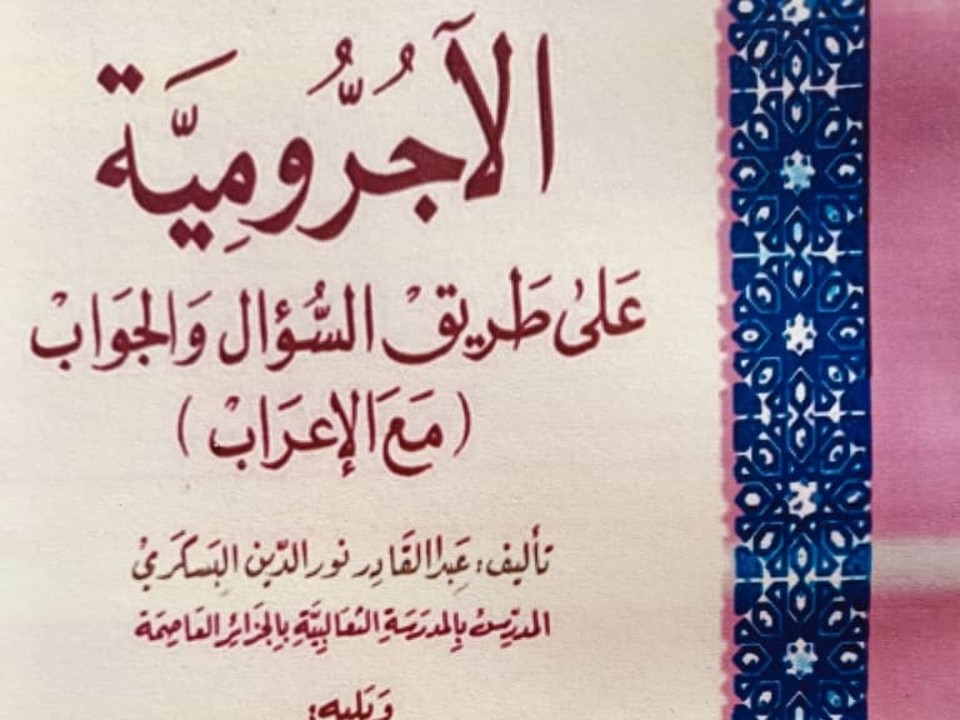 الآجُرُّومِيَّة
عَلىٰ طَريقْ السُّؤال وَالجَوَابْ
(مَعَ الإعرَابْ)
تأليف: عَبدالقَادِر نور الدّين البَسكَريْ
المدرّسْ بِالمدرَسَةِ الثعَالبيَّةِ بِالجزَائر العَاصِمَة
وَيَليه: